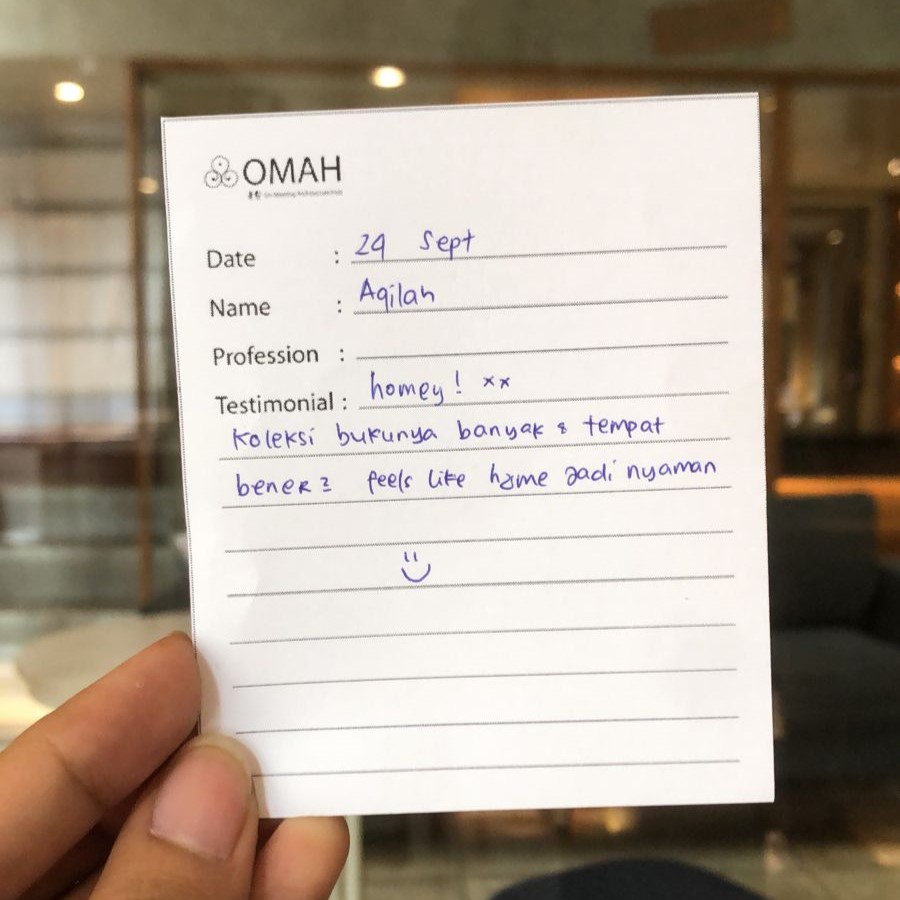 OMAH
Date : 29 Sept
Name : Aqilah
Profession :
Testimonial : homey! xx
Koleksi bukunya banyak & tempat
bener2 feels like home jadi nyaman